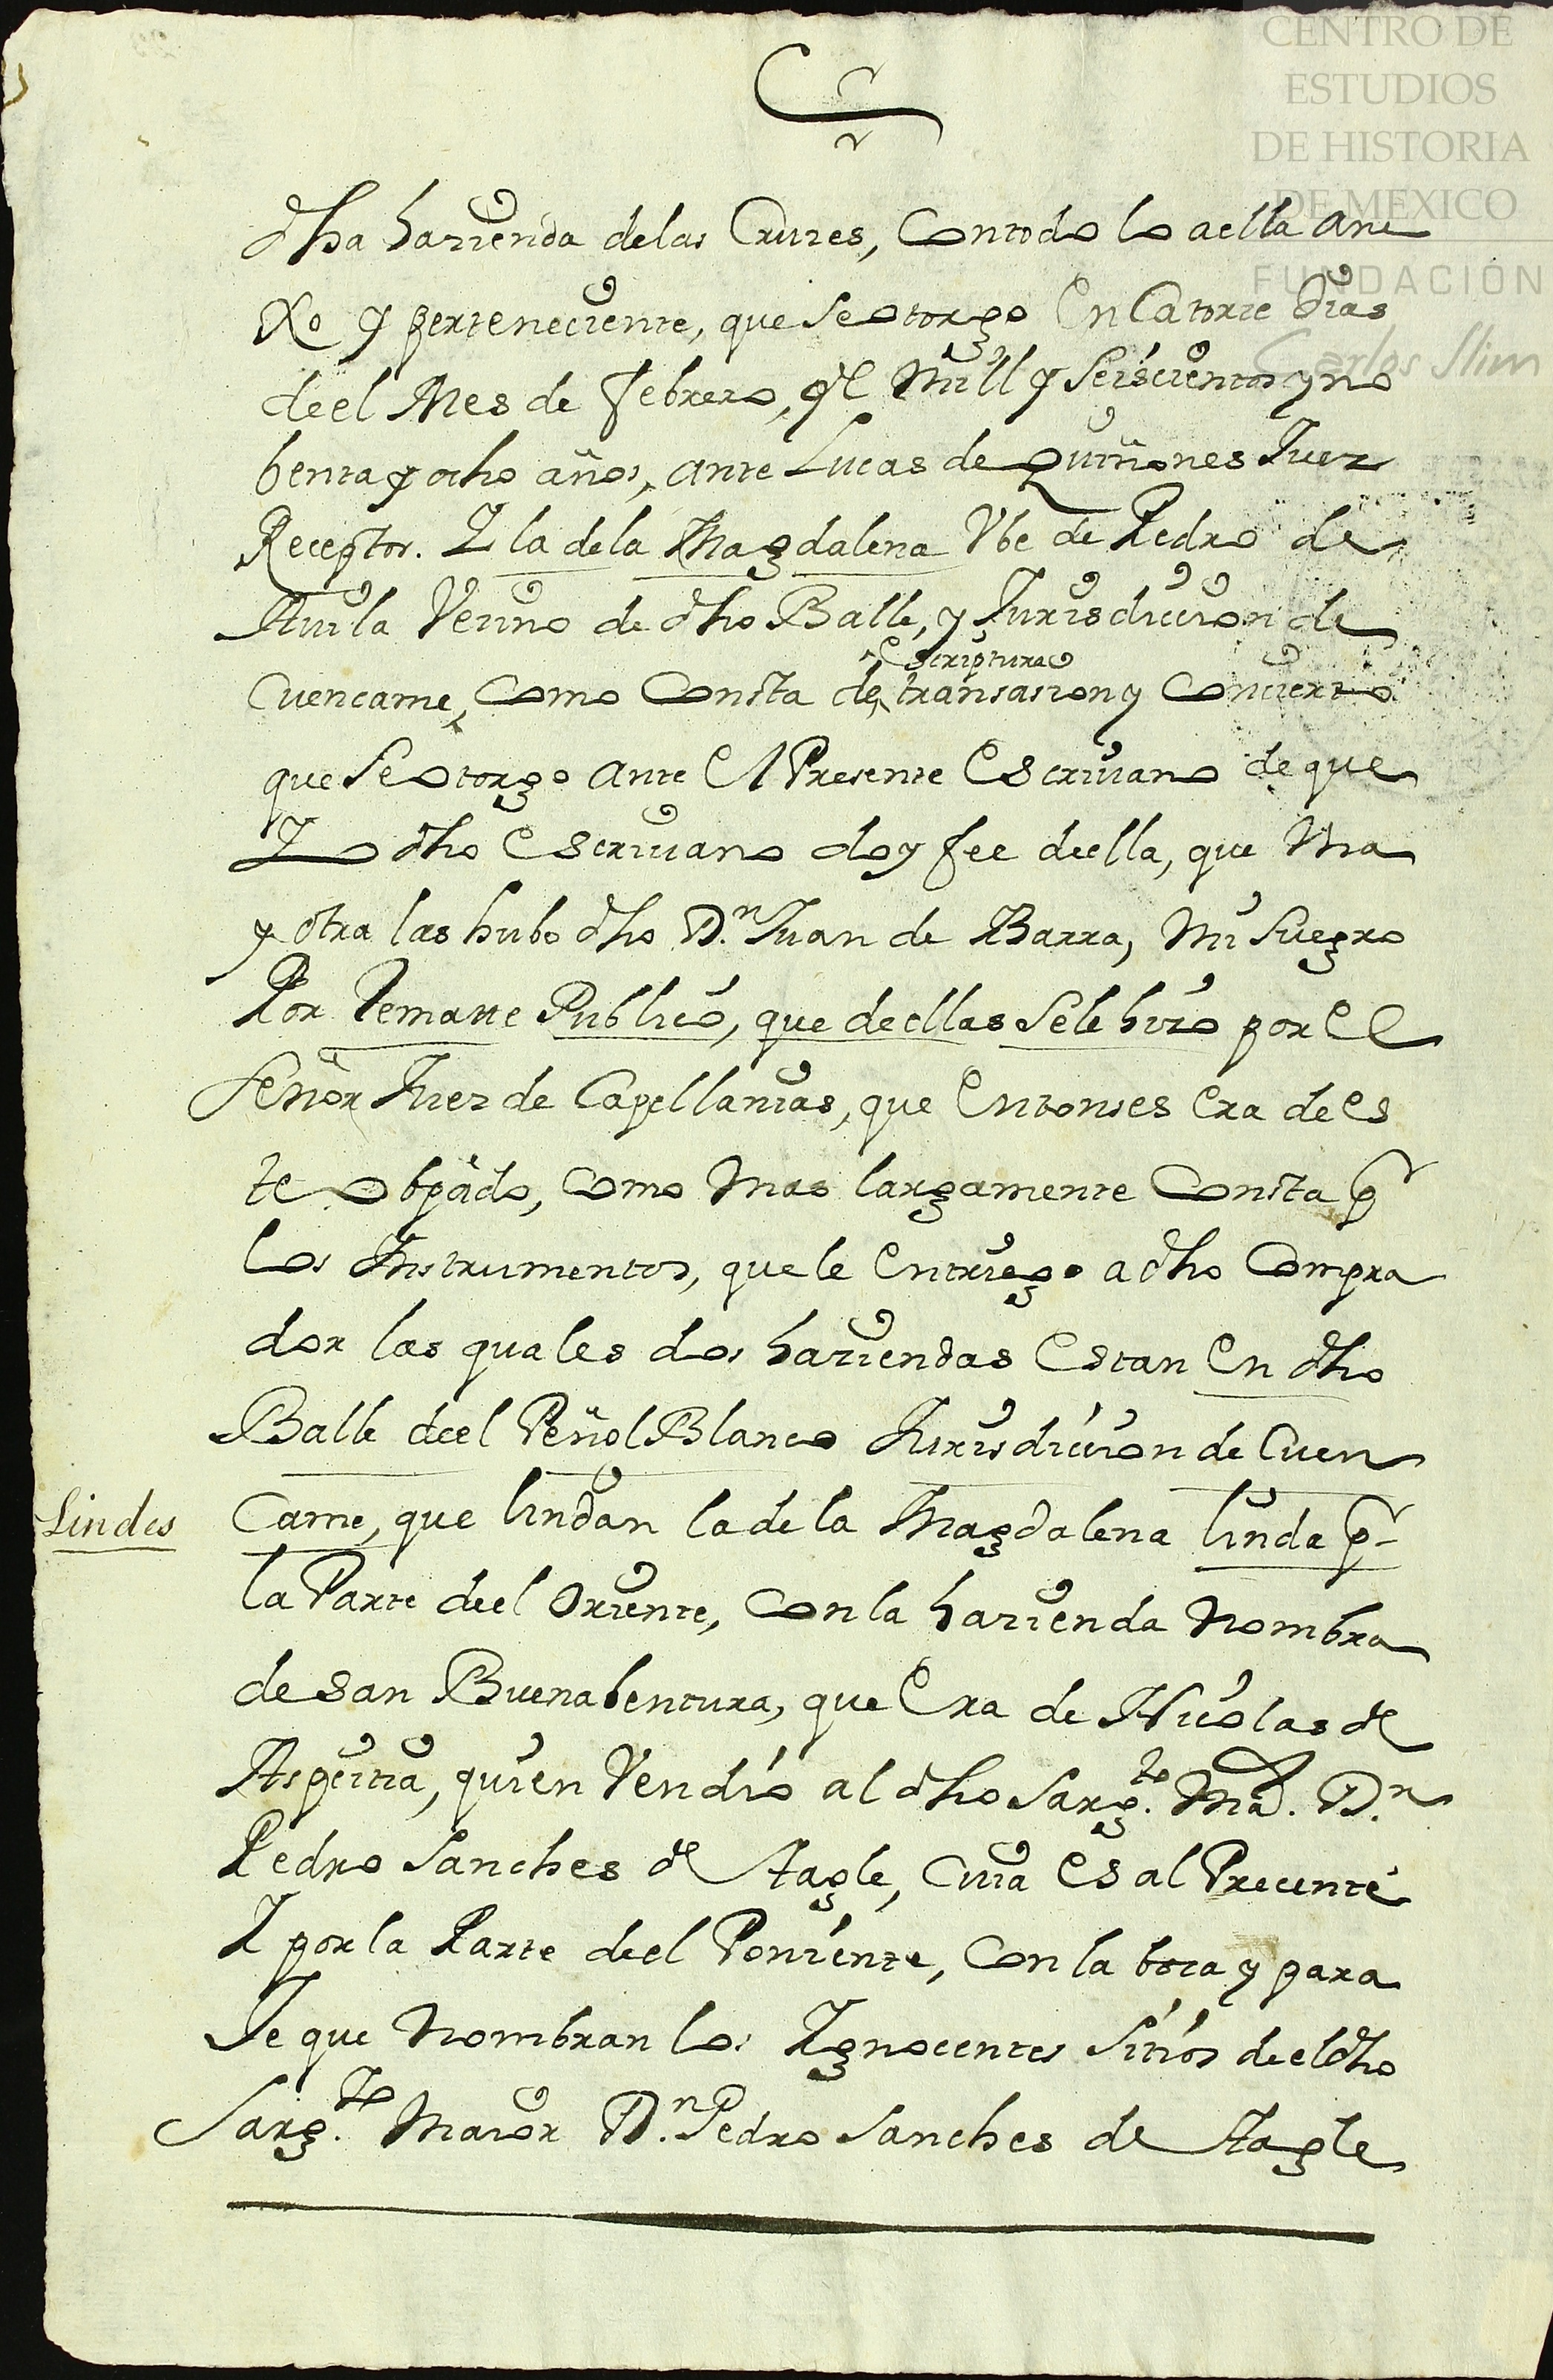 CENTRO DE
ESTUDIOS
DE HISTORIA
DE MEXICO
FUNDACIÓN
Carlos Slim
dha hazienda delas Cruzes, Contodo lo aella ane
xo y perteneciente, que se otorgo En Catorze Dias
deel Mes de febrero, de Mill y seiscientos y no
benta y ocho años, ante Lucas de Quiñones Juez
Receptor. Y la dela Magdalena Vbe de Pedro de
Auila Vezino de dho Balle, y Jurisdiccion de
escriptura
Cuencame, Como Consta de transasion y Concierto
que se otorgo ante El Presente Escriuano de que
Yo dho Escriuano doy fee deella, que Vna
y otra las hubo dho D.n Juan de Ibarra, Mi suegro
Por Remate Publico, que deellas sele hizo por El
señor Juez de Capellanias, que Entonses Era de Es
te obpado, Como Mas largamente Consta pr
los Instrumentos, que le Entriego a dho Compra
dor las quales dos haziendas Estan En dho
Balle deel Peñol Blanco Jurisdiccion de Cuen
Lindes
Came, que lindan la de la Magdalena linda pr
la Parte deel Oriente, Con la hazienda Nombra
de San Buenabentura, que Era de Nicolas de
Aspeitia, quien Vendio al dho Sarg.to Ma. D.n
Pedro Sanches de Tagle, Cuia Es al Precente
Y por la Parte deel Poniente, Con la boca y para
Je que Nombran los Ygnocentes sitios deel dho
Sarg.to Maior D.n Pedro Sanches de Tagle